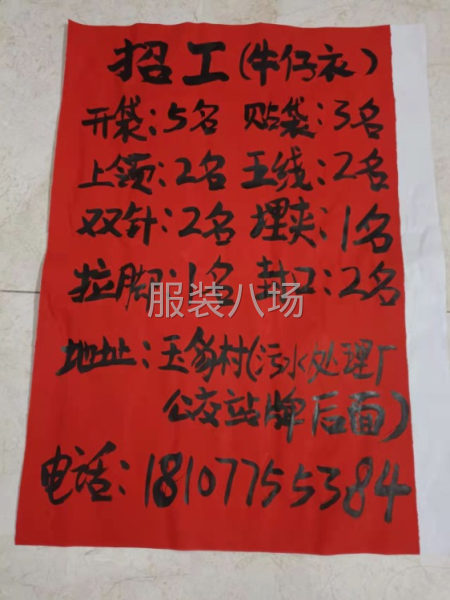 招工(牛仔衣)
开袋:5名 贴袋:3名
上领:2名 五线:2名
双针:2名 埋夹:1名
拉脚:1名 封口:2名
服装八场
地址:王家村(污水处理厂
公交站牌后面)
电话:18107755384